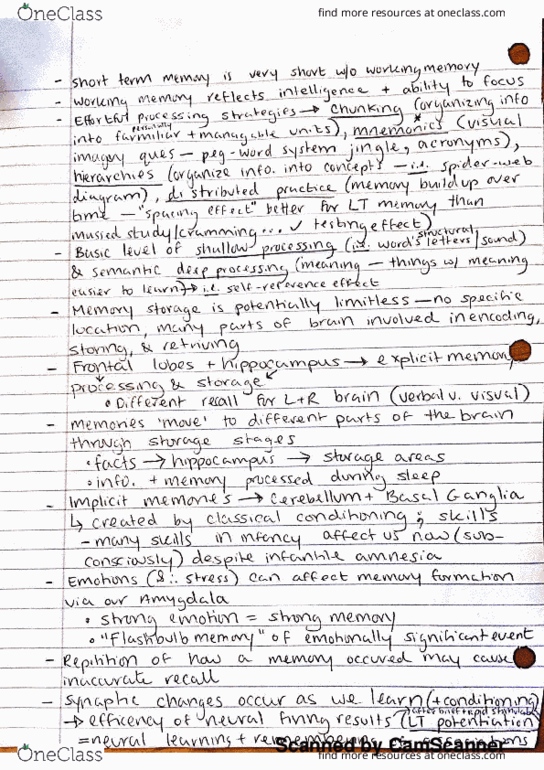 OneClass
find more resources at oneclass.com
- short term memory is very short w/o working memory
- working memory reflects intelligence + ability to focus
- Effortful processing strategies → chunking (organizing info
personally
into farmiliar + managable units), mnemonics (visual
imagery ques - peg-word system jingle, acronyms),
hierarchies (organize info. into concepts - i.e. spider-web
diagram), distributed practice (memory build up over
time - "spacing effect" better for LT memory than
massed study/cramming... ✓ testing effect)
structural
- Basic level of shallow processing (i.e. word's letters/sound)
& semantic deep processing (meaning - things w/ meaning
easier to learn) → i.e. self-reference effect
- Memory storage is potentially limitless - no specific
location, many parts of brain involved in encoding,
storing, & retriving
- Frontal lobes + hippocampus → explicit memory
processing & storage
• Different recall for L+R brain (verbal v. visual)
- memories 'move' to different parts of the brain
through storage stages
• facts → hippocampus → storage areas
• info. + memory processed during sleep
- Implicit memories → cerebellum + Basal Ganglia
↳ created by classical conditioning ; skills
- many skills in infancy affect us now (sub-
consciously) despite infantile amnesia
- Emotions (& ∴ stress) can affect memory formation
via our Amygdala
• strong emotion = strong memory
• "Flashbulb memory" of emotionally significant event
- Repitition of how a memory occured may cause
inaccurate recall
- Synaptic changes occur as we learn (+ conditioning)
→ efficency of neural firing results (LT potentiation
= neural learning + remembering
Scanned by CamScanner
OneClass
find more resources at oneclass.com